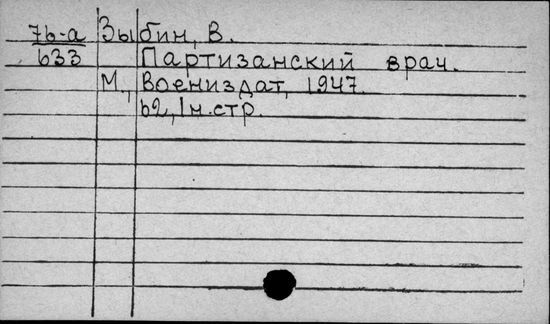 7б-а Зыбин, В.
633 Партизанский врач.
М., Воениздат, 1947.
62, 1н.стр.